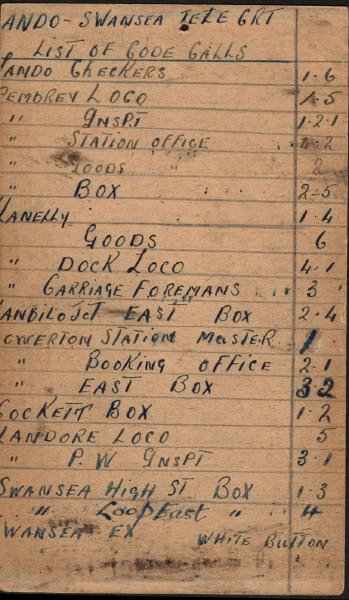 ANDO - SWANSEA TELE GRT
LIST OF CODE CALLS
ANDO CHECKERS 1·6
PEMBREY LOCO 1·5
" INSPT 1·2·1
" STATION OFFICE 2
" GOODS " 2
" BOX 2-5
LANELLY 1·4
GOODS 6
" DOCK LOCO 4·1
" CARRIAGE FOREMANS 3
LANDILO JCT EAST BOX 2·4
GOWERTON STATION MASTER 1
" BOOKING OFFICE 2·1
" EAST BOX 32
COCKETT BOX 1·2
LANDORE LOCO 5
" P.W INSPT 3·1
SWANSEA HIGH ST. BOX 1·3
" Loop East " 4
SWANSEA EX WHITE BUTTON